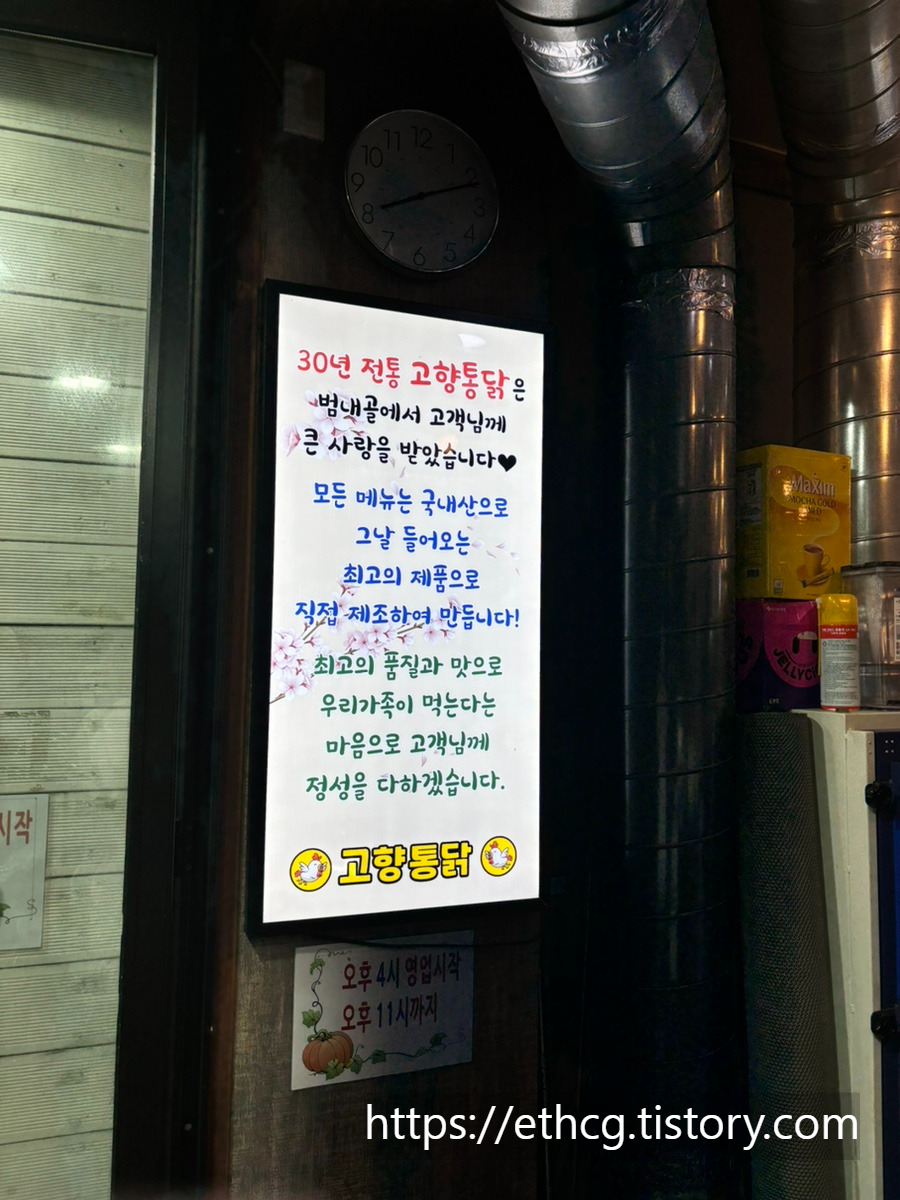 12
11
1
10
2
9
3
8
4
7
5
6
30년 전통 고향통닭은
범내골에서 고객님께
큰 사랑을 받았습니다♥
모든 메뉴는 국내산으로
그날 들어오는
최고의 제품으로
직접 제조하여 만듭니다!
최고의 품질과 맛으로
우리가족이 먹는다는
마음으로 고객님께
정성을 다하겠습니다.
고향통닭
오후 4시 영업시작
오후 11시까지
시작
Maxim
MOCHA GOLD
JELLYC
https://ethcg.tistory.com